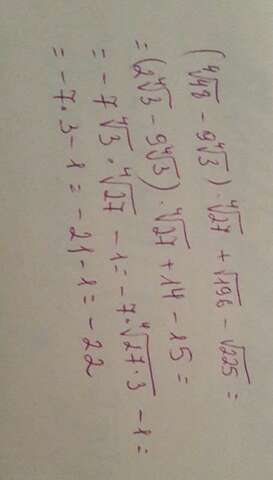 (∜48 − 9∜3) · ∜27 + √196 − √225 =
= (2∜3 − 9∜3) · ∜27 + 14 − 15 =
= −7∜3 · ∜27 − 1 = −7 · ∜27·3 − 1 =
= −7 · 3 − 1 = −21 − 1 = −22